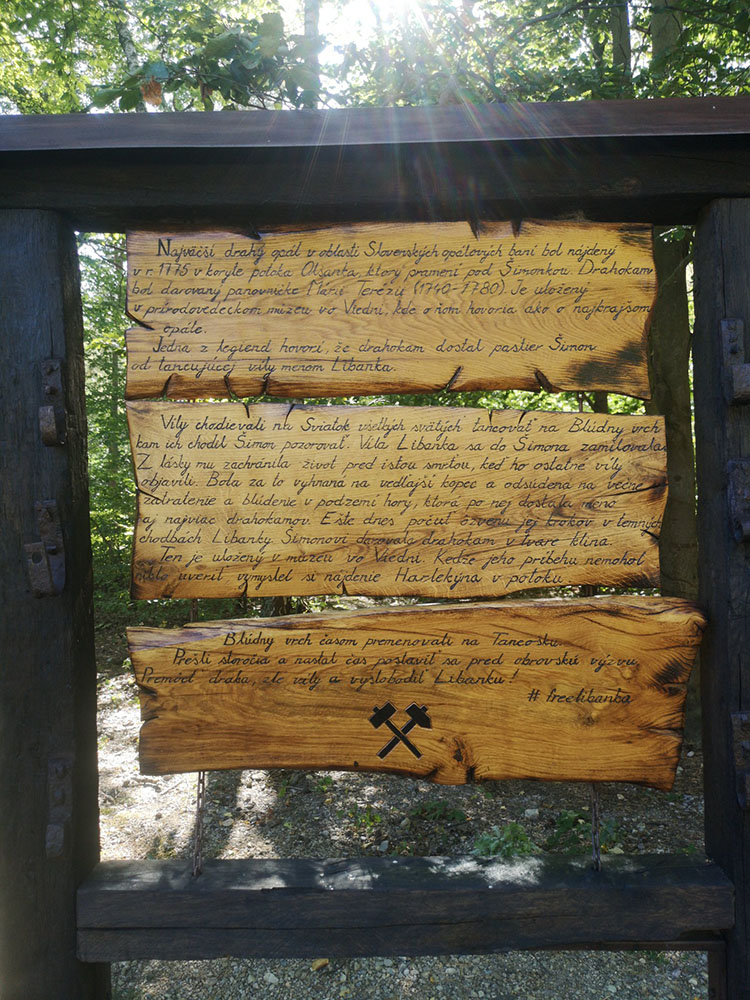 Najväčší drahý opál v oblasti Slovenských opálových baní bol nájdený
v r. 1775 v koryte potoka Olšanka, ktorý pramení pod Šimonkou. Drahokam
bol darovaný panovníčke Márii Terézii (1740-1780). Je uložený
v prírodovedeckom múzeu vo Viedni, kde o ňom hovoria ako o najkrajšom
opále.
Jedna z legiend hovorí, že drahokam dostal pastier Šimon
od tancujúcej víly menom Libanka.
Víly chodievali na Sviatok všetkých svätých tancovať na Blúdny vrch
tam ich chodil Šimon pozorovať. Víla Libanka sa do Šimona zamilovala.
Z lásky mu zachránila život pred istou smrťou, keď ho ostatné víly
objavili. Bola za to vyhnaná na vedľajší kopec a odsúdená na večné
zatratenie a blúdenie v podzemí hory, ktorá po nej dostala meno
aj najviac drahokamov. Ešte dnes počuť ozvenu jej krokov v temných
chodbách Libanky. Šimonovi darovala drahokam v tvare klina.
Ten je uložený v múzeu vo Viedni. Kedže jeho príbehu nemohol
nikto uveriť vymyslel si nájdenie Harlekýna v potoku.
Blúdny vrch časom premenovali na Tancošku.
Prešli storočia a nastal čas postaviť sa pred obrovskú výzvu.
Premôcť draka, zlé víly a vyslobodiť Libanku!
# freelibanka